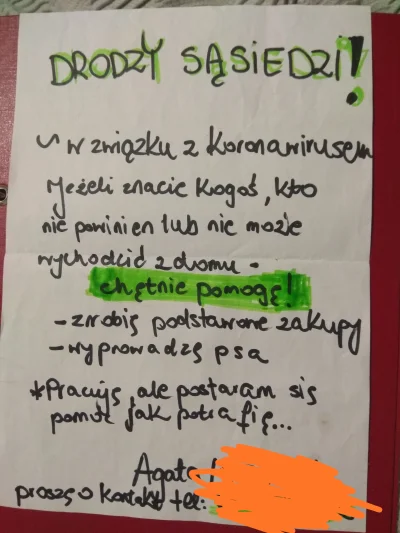 DRODZY SĄSIEDZI!
w związku z Koronawirusem
Jeżeli znacie kogoś, kto
nie powinien lub nie może
wychodzić z domu -
chętnie pomogę!
- zrobię podstawowe zakupy
- wyprowadzę psa
*Pracuję, ale postaram się
pomóc jak potrafię...
Agata
proszę o kontakt tel: